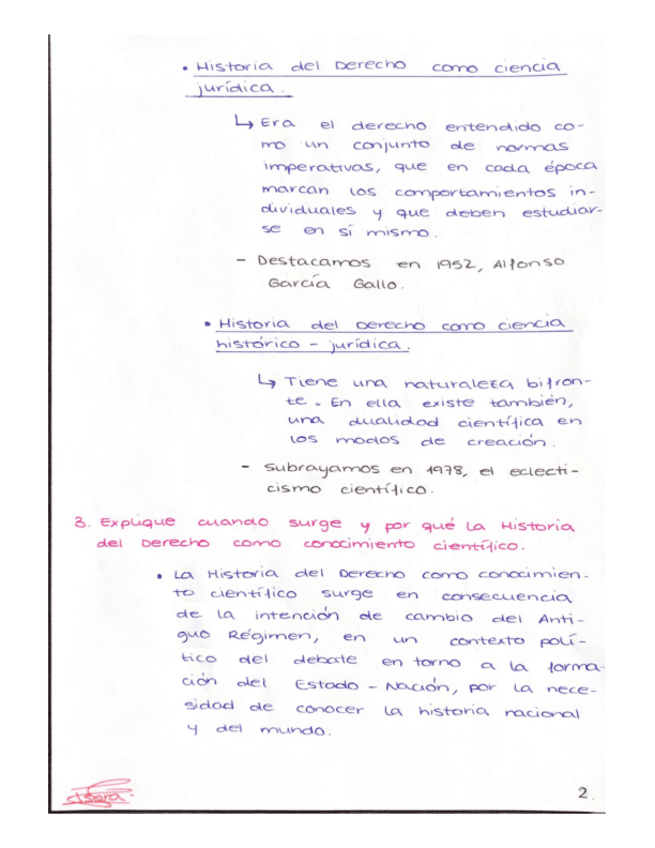 • Historia del Derecho como ciencia
jurídica.
↳ Era el derecho entendido co-
mo un conjunto de normas
imperativas, que en cada época
marcan los comportamientos in-
dividuales y que deben estudiar-
se en sí mismo.
- Destacamos en 1952, Alfonso
García Gallo.
• Historia del Derecho como ciencia
histórico - jurídica.
↳ Tiene una naturaleza bifron-
te. En ella existe también,
una dualidad científica en
los modos de creación.
- Subrayamos en 1978, el eclecti-
cismo científico.
3. Explique cuando surge y por qué la Historia
del Derecho como conocimiento científico.
• La Historia del Derecho como conocimien-
to científico surge en consecuencia
de la intención de cambio del Anti-
guo Régimen, en un contexto polí-
tico del debate en torno a la forma-
ción del Estado - Nación, por la nece-
sidad de conocer la historia nacional
y del mundo.
2.